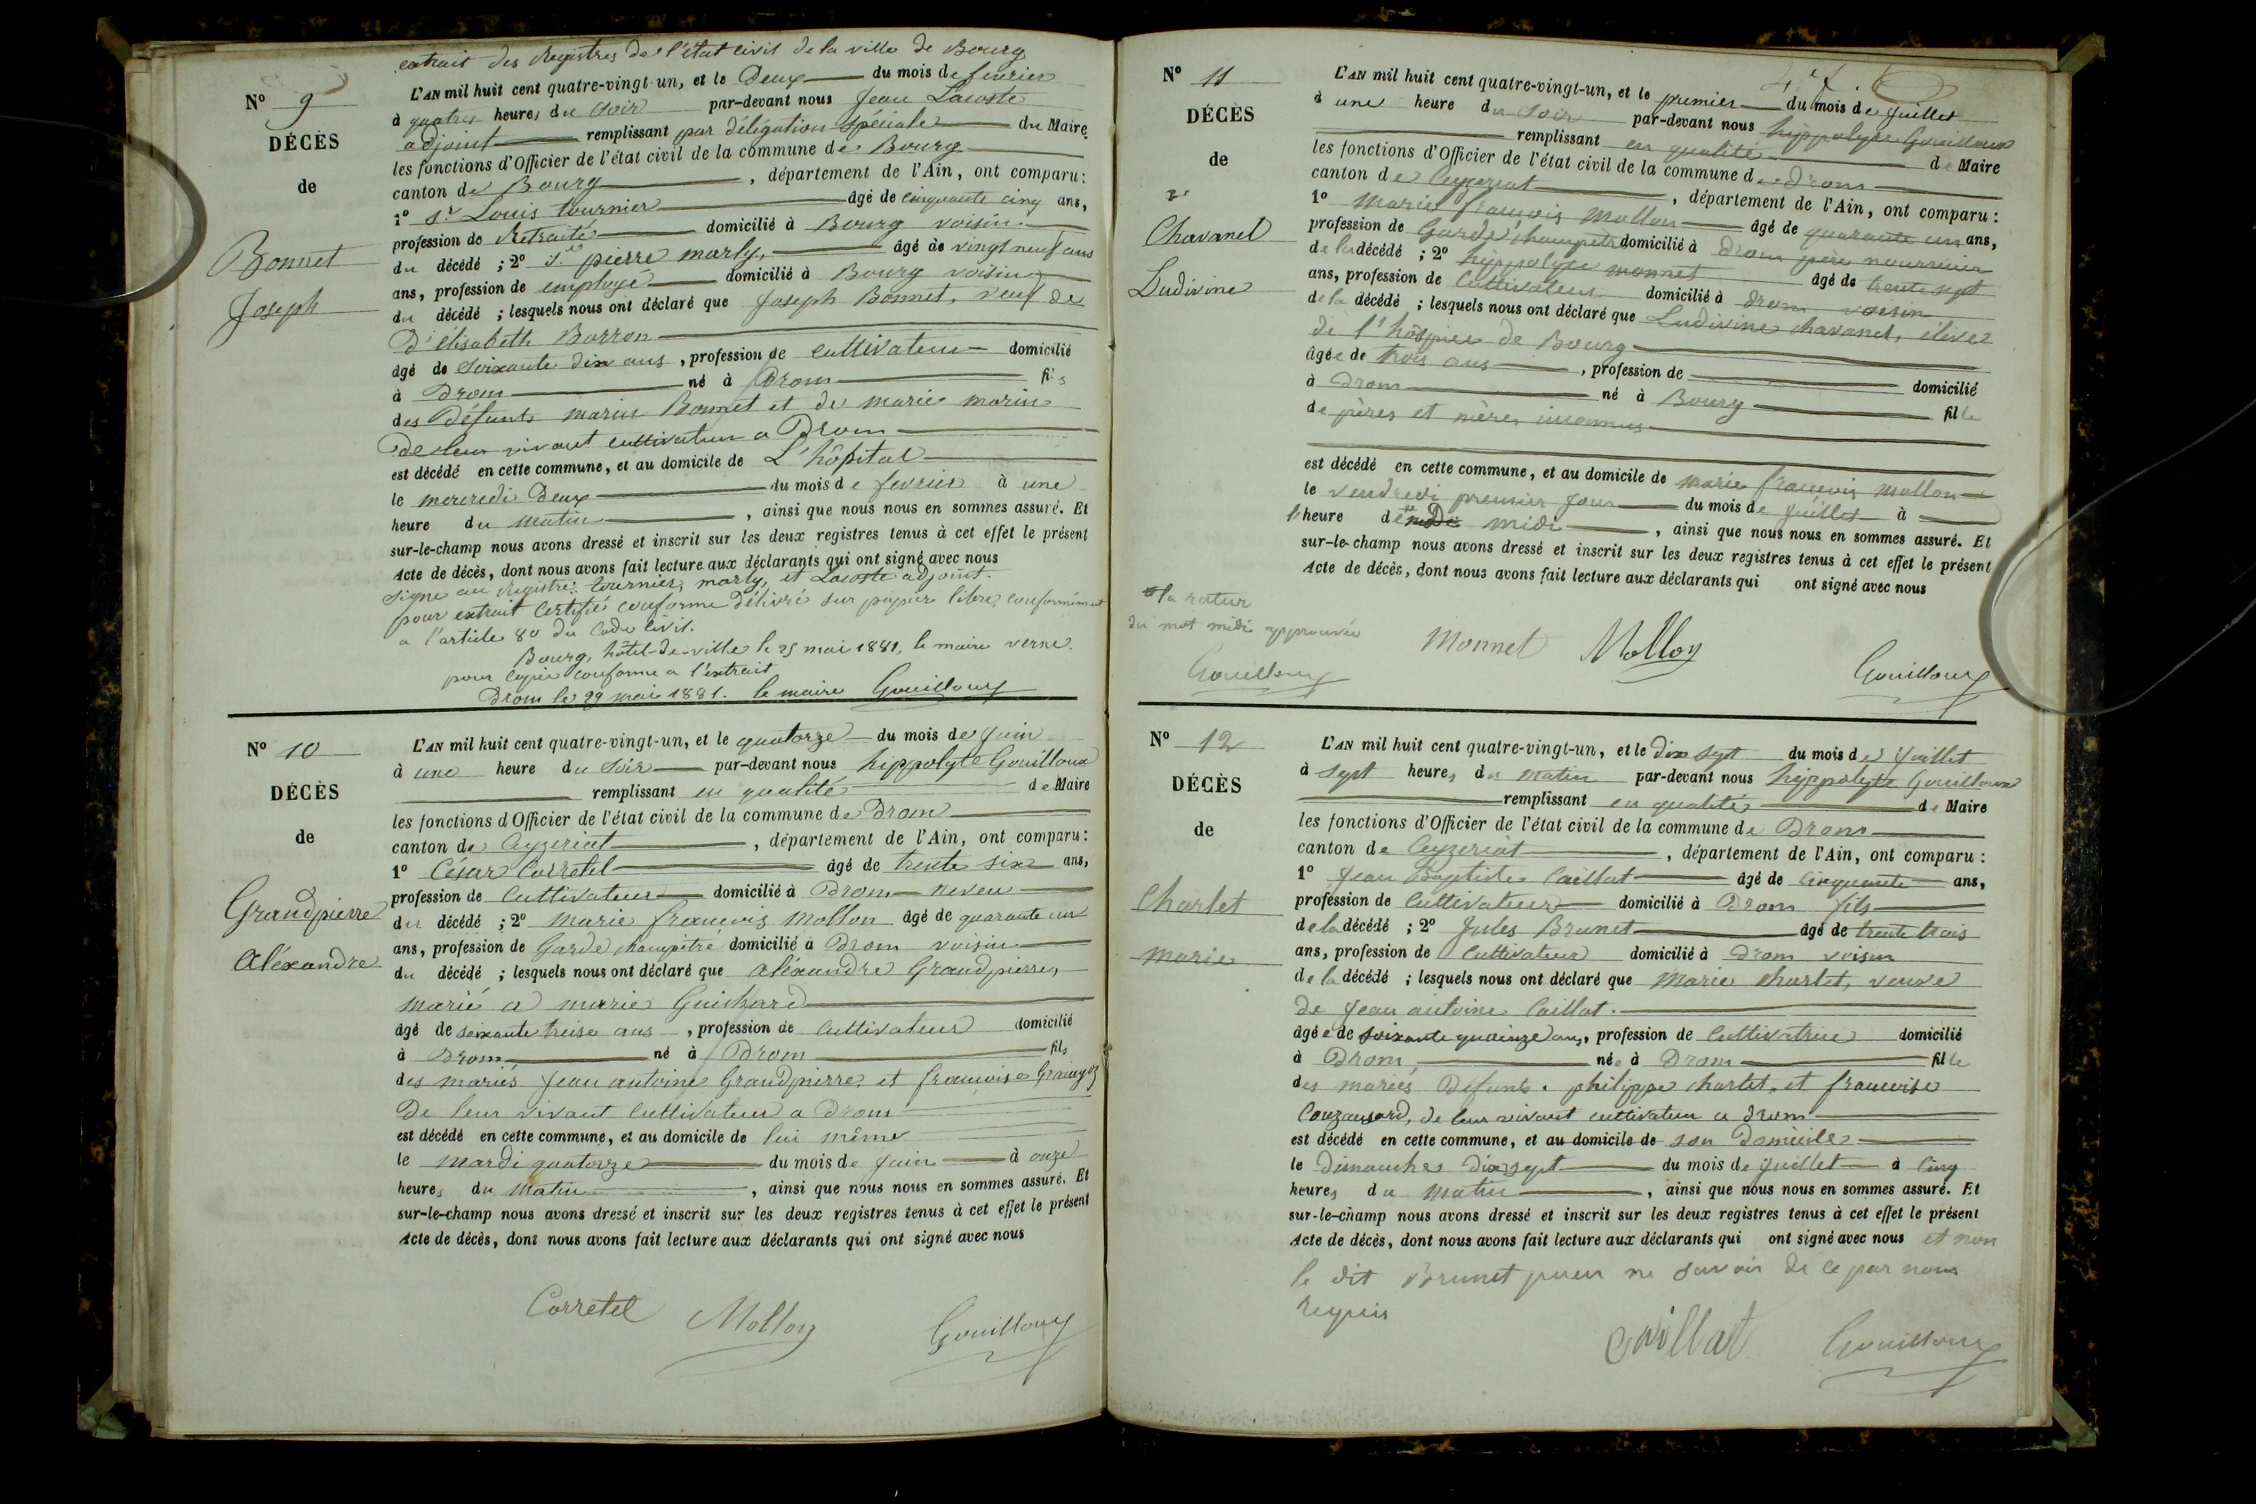 extrait des Registres de l'état civil de la ville de Bourg
N° 9
DÉCÈS
de
Bonnet
Joseph
L'AN mil huit cent quatre-vingt-un, et le Deux du mois de fevrier
à quatre heures du soir par-devant nous Jean Lacoste
adjoint remplissant par délégation spéciale du Maire
les fonctions d'Officier de l'état civil de la commune de Bourg
canton de Bourg, département de l'Ain, ont comparu:
1° Sr Louis tournier âgé de cinquante cinq ans,
profession de Retraité domicilié à Bourg voisin
du décédé ; 2° Sr pierre marly, âgé de vingt neuf ans
ans, profession de employé domicilié à Bourg voisin
du décédé ; lesquels nous ont déclaré que Joseph Bonnet, veuf de
D'élisabeth Borron
âgé de soixante dix ans, profession de cultivateur domicilié
à Drom né à Drom fils
des Défunts marin Bonnet et de marie marin
De leur vivant cultivateur a Drom
est décédé en cette commune, et au domicile de L'hôpital
le mercredi Deux du mois de fevrier à une
heure du matin, ainsi que nous nous en sommes assuré. Et
sur-le-champ nous avons dressé et inscrit sur les deux registres tenus à cet effet le présent
Acte de décès, dont nous avons fait lecture aux déclarants qui ont signé avec nous
signe au Registre: tournier, marly, et Lacoste adjoint.
pour extrait certifié conforme Délivré sur papier libre, conformément
a l'article 80 du Code civil.
Bourg, hôtel-de-ville le 25 mai 1881, le maire verne.
pour copie conforme a l'extrait
Drom le 29 mai 1881. le maire Gouilloux
N° 10
DÉCÈS
de
Grandpierre
Aléxandre
L'AN mil huit cent quatre-vingt-un, et le quatorze du mois de Juin
à une heure du soir par-devant nous hippolyte Gouilloux
remplissant en qualité de Maire
les fonctions d'Officier de l'état civil de la commune de Drom
canton de Ceyzeriat, département de l'Ain, ont comparu:
1° César Corretel âgé de trente six ans,
profession de Cultivateur domicilié à Drom neveu
du décédé ; 2° marie francois Mollon âgé de quarante un
ans, profession de Garde champetré domicilié à Drom voisin
du décédé ; lesquels nous ont déclaré que aléxandre Grandpierre,
marié a marie Guichard
âgé de soixante treise ans, profession de cultivateur domicilié
à Drom né à Drom fils
des mariés Jean antoine Grandpierre et francoise
De leur vivant cultivateur a Drom
est décédé en cette commune, et au domicile de lui même
le mardi quatorze du mois de Juin à onze
heures du Matin, ainsi que nous nous en sommes assuré. Et
sur-le-champ nous avons dressé et inscrit sur les deux registres tenus à cet effet le présent
Acte de décès, dont nous avons fait lecture aux déclarants qui ont signé avec nous
Corretel Mollon Gouilloux
N° 11
DÉCÈS
de
Chavanel
Ludivine
L'AN mil huit cent quatre-vingt-un, et le premier du mois de Juillet
à une heure du soir par-devant nous hippolyte Gouilloux
remplissant en qualité de Maire
les fonctions d'Officier de l'état civil de la commune de Drom
canton de Ceyzeriat, département de l'Ain, ont comparu :
1° Marie francois Mollon âgé de quarante un ans,
profession de Garde champetre domicilié à Drom père nourricier
de la décédé ; 2° hyppolyte monnet âgé de trente sept
ans, profession de Cultivateur domicilié à Drom voisin
de la décédé ; lesquels nous ont déclaré que Ludivine chavanel, élève
de l'hospice de Bourg
âgée de trois ans, profession de domicilié
à Drom né à Bourg fille
de pères et mères inconnus
est décédé en cette commune, et au domicile de marie francois mollon
le vendredi premier jour du mois de Juillet à
heure de midi, ainsi que nous nous en sommes assuré. Et
sur-le-champ nous avons dressé et inscrit sur les deux registres tenus à cet effet le présent
Acte de décès, dont nous avons fait lecture aux déclarants qui ont signé avec nous
la ratur
du mot midi approuvée
Gouilloux Monnet Mollon Gouilloux
N° 12
DÉCÈS
de
Charlet
Marie
L'AN mil huit cent quatre-vingt-un, et le dix sept du mois de Juillet
à sept heures du matin par-devant nous hyppolyte Gouilloux
remplissant en qualité de Maire
les fonctions d'Officier de l'état civil de la commune de Drom
canton de Ceyzeriat, département de l'Ain, ont comparu :
1° Jean Baptiste Caillat âgé de cinquante ans,
profession de Cultivateur domicilié à Drom fils
de la décédé ; 2° Jules Brunet âgé de trente trois
ans, profession de Cultivateur domicilié à Drom voisin
de la décédé ; lesquels nous ont déclaré que Marie charlet, veuve
de Jean antoine Caillat.
âgée de soixante quainze ans, profession de Cultivatrice domicilié
à Drom, née à Drom fille
des mariés Défunts. philippe charlet, et francoise
Couzansard, de leur vivant cultivateur a Drom
est décédé en cette commune, et au domicile de son Domicile
le Dimanche Dix sept du mois de Juillet à cinq
heures du matin, ainsi que nous nous en sommes assuré. Et
sur-le-champ nous avons dressé et inscrit sur les deux registres tenus à cet effet le présent
Acte de décès, dont nous avons fait lecture aux déclarants qui ont signé avec nous et non
le dit Brunet pour ne savoir de ce par nous
requis
Caillat Gouilloux